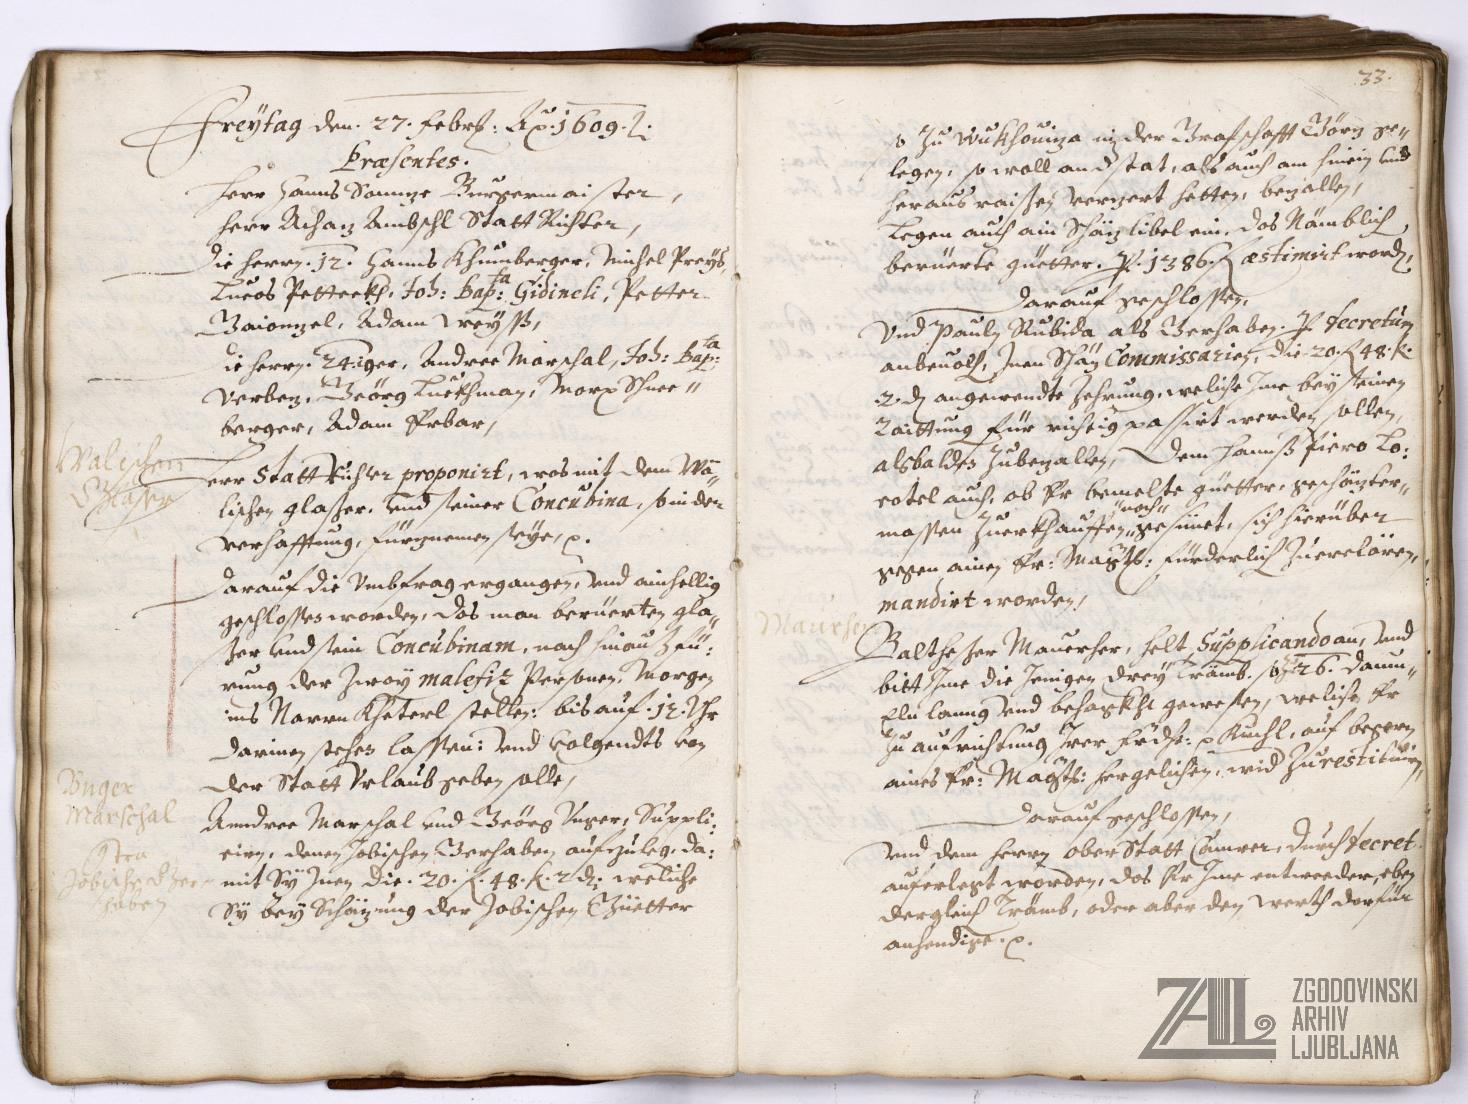 Freytag den. 27. Febr: Aõ. 1609. L.
Præsentes.
Herr Hanns Sonnze Burgermaister,
Herr Achaz Ambschl Statt Richter,
Die herrn. 12. Hanns Khumberger, Michel Preys,
Lucas Petteekh, Joh: Bap:ta Gidineli, Petter
Baionzel, Adam Weyss,
Die herrn. 24:iger, Andree Marschal, Joh: Bap:ta
Verbez, Geörg Luckhman, Marx Schnee"
berger, Adam Erbar,
Walischen
Glaser
Herr Statt Richter proponirt, was mit dem Wä„
lischen glaser, und seiner Concubina, so in der
verhafftung, fürzunemen seye, p.
Darauf die Umbfrag ergangen, und ainhellig
geschlossen worden, das man beruerten gla„
ser und sein Concubinam, nach hinaussfü:
rung der zway malefiz Personen, Morgen
ins Narrn Kheterl stellen: bis auf. 12. Uhr
darinen stehen lassen: und volgendts von
der Statt Urlaub geben solle,
Unger
Marschal
Ctra
Jobische Ger„
haben
Anndree Marschal und Geörg Unger, Suppli:
cirn, denen Jobischen Gerhaben aufzuleg, da:
mit Sy Inen die. 20. f. 48. k. 2 d: weliche
Sy bey Schäzung der Jobischen Güetter
33.
zu Wukhouiza in der Grafschafft Görz ge„
legen, so woll an d stat, als auch am hinein und
heraus raisen verzert hetten, bezallen,
Legen auch ain Schäz libel ein, das Nämblich
beruerte güetter. P. 1386. f æstimirt word,
Darauf geschlossen,
Und Pauln Rubida als Gerhaben. P. Decretum
anbeuolh, Inen Schäz Commissarien, die 20. f 48. k.
2. d angewendte Zehrung, weliche Ime bey seinen
Raittung für richtig passirt werden sollen,
alsbalden zubezallen, Dem Hannss Piero Co:
rotel auch, ob Er bemelte güetter, geschäzter„
massen zuerkhauffen "noch" gesinnet, sich hierüber
gegen ainen Er: Magts: fürderlich zuerclären,
mandirt worden,
Maurher
Balthesser Mauerher, helt Supplicando an, und
bitt Ime die Jenigen drey Trämb, so 26. Daum„
Eln lanng und behaskht gewesen, weliche Er
zu aufrichtung Irer Fürdh: p Kuchl, auf begern
aines Er: Magts: hergelichen, wid zu restituirn,
Darauf geschlossen,
Und dem herrn ober Statt Camrer, durch Decret
auferlegt worden, das Er Ime entweder, eben
dergleich Trämb, oder aber den werth darfür
anhendige. p.
ZAL
ZGODOVINSKI
ARHIV
LJUBLJANA